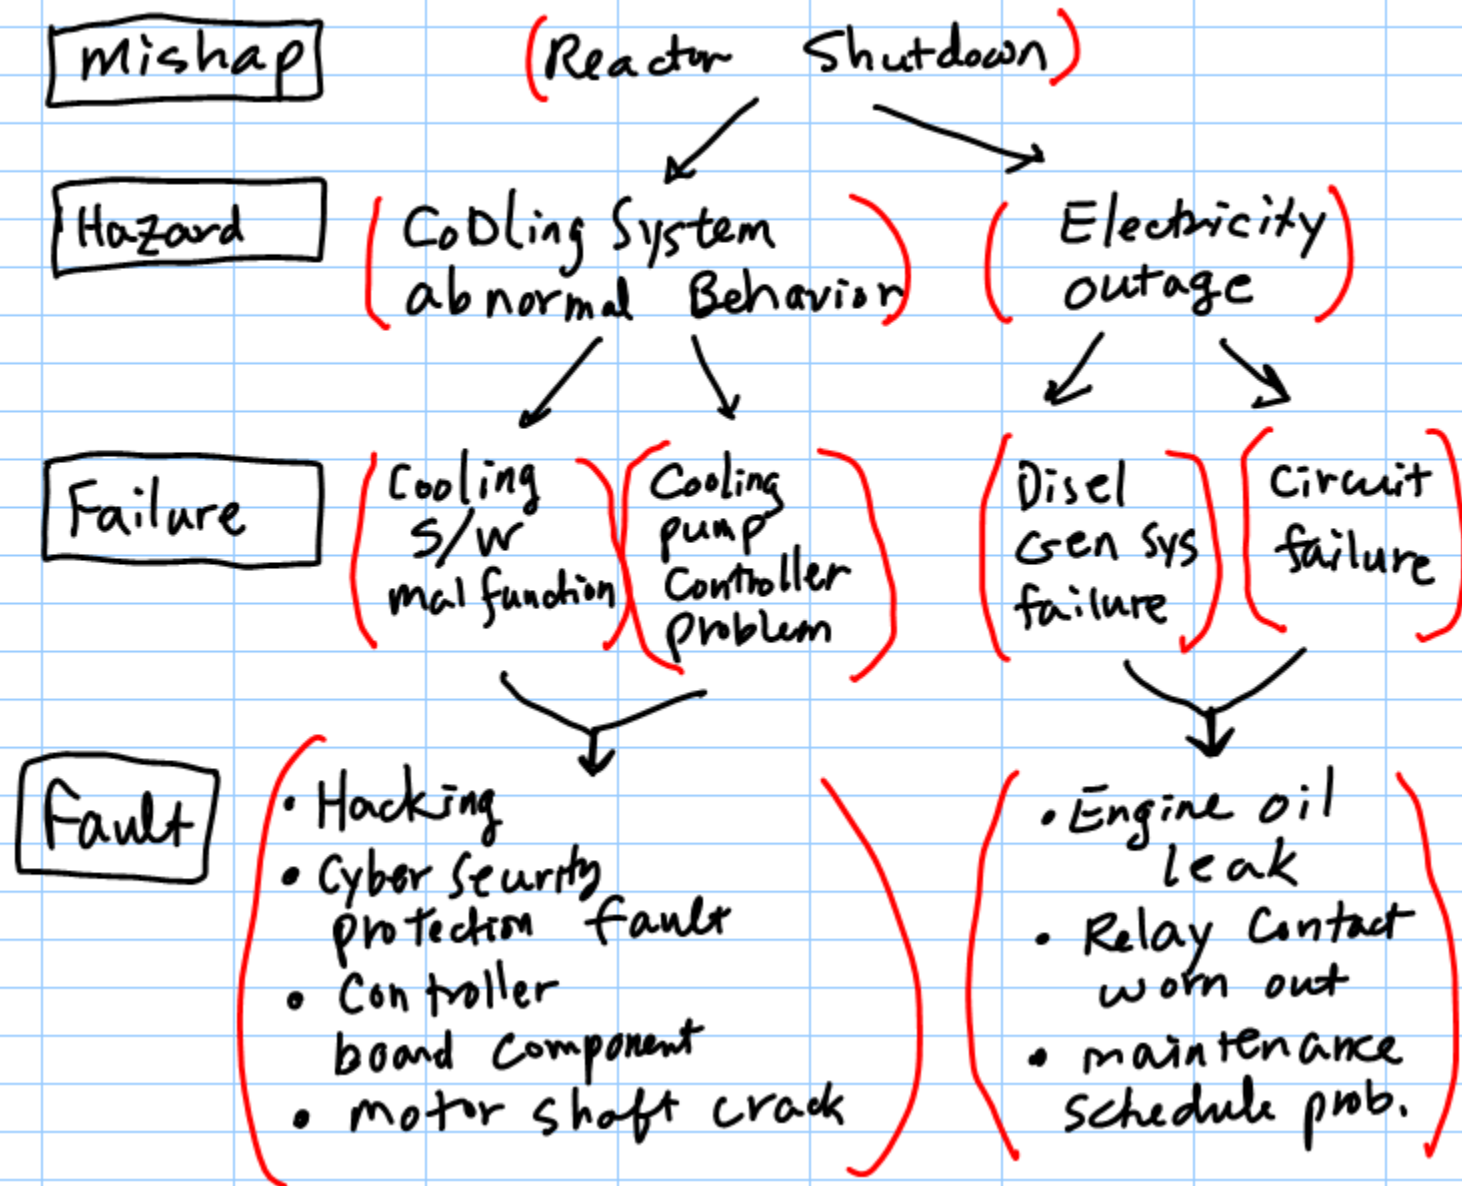 Mishap
(Reactor Shutdown)
Hazard
(Cooling System
abnormal Behavior)
(Electricity
outage)
Failure
(Cooling
S/W
malfunction)
(Cooling
pump
Controller
problem)
(Disel
Gen Sys
failure)
(Circuit
failure)
Fault
(• Hacking
• Cyber Seurity
protection fault
• Controller
board component
• motor shaft crack)
(• Engine oil
leak
• Relay Contact
worn out
• maintenance
schedule prob.)